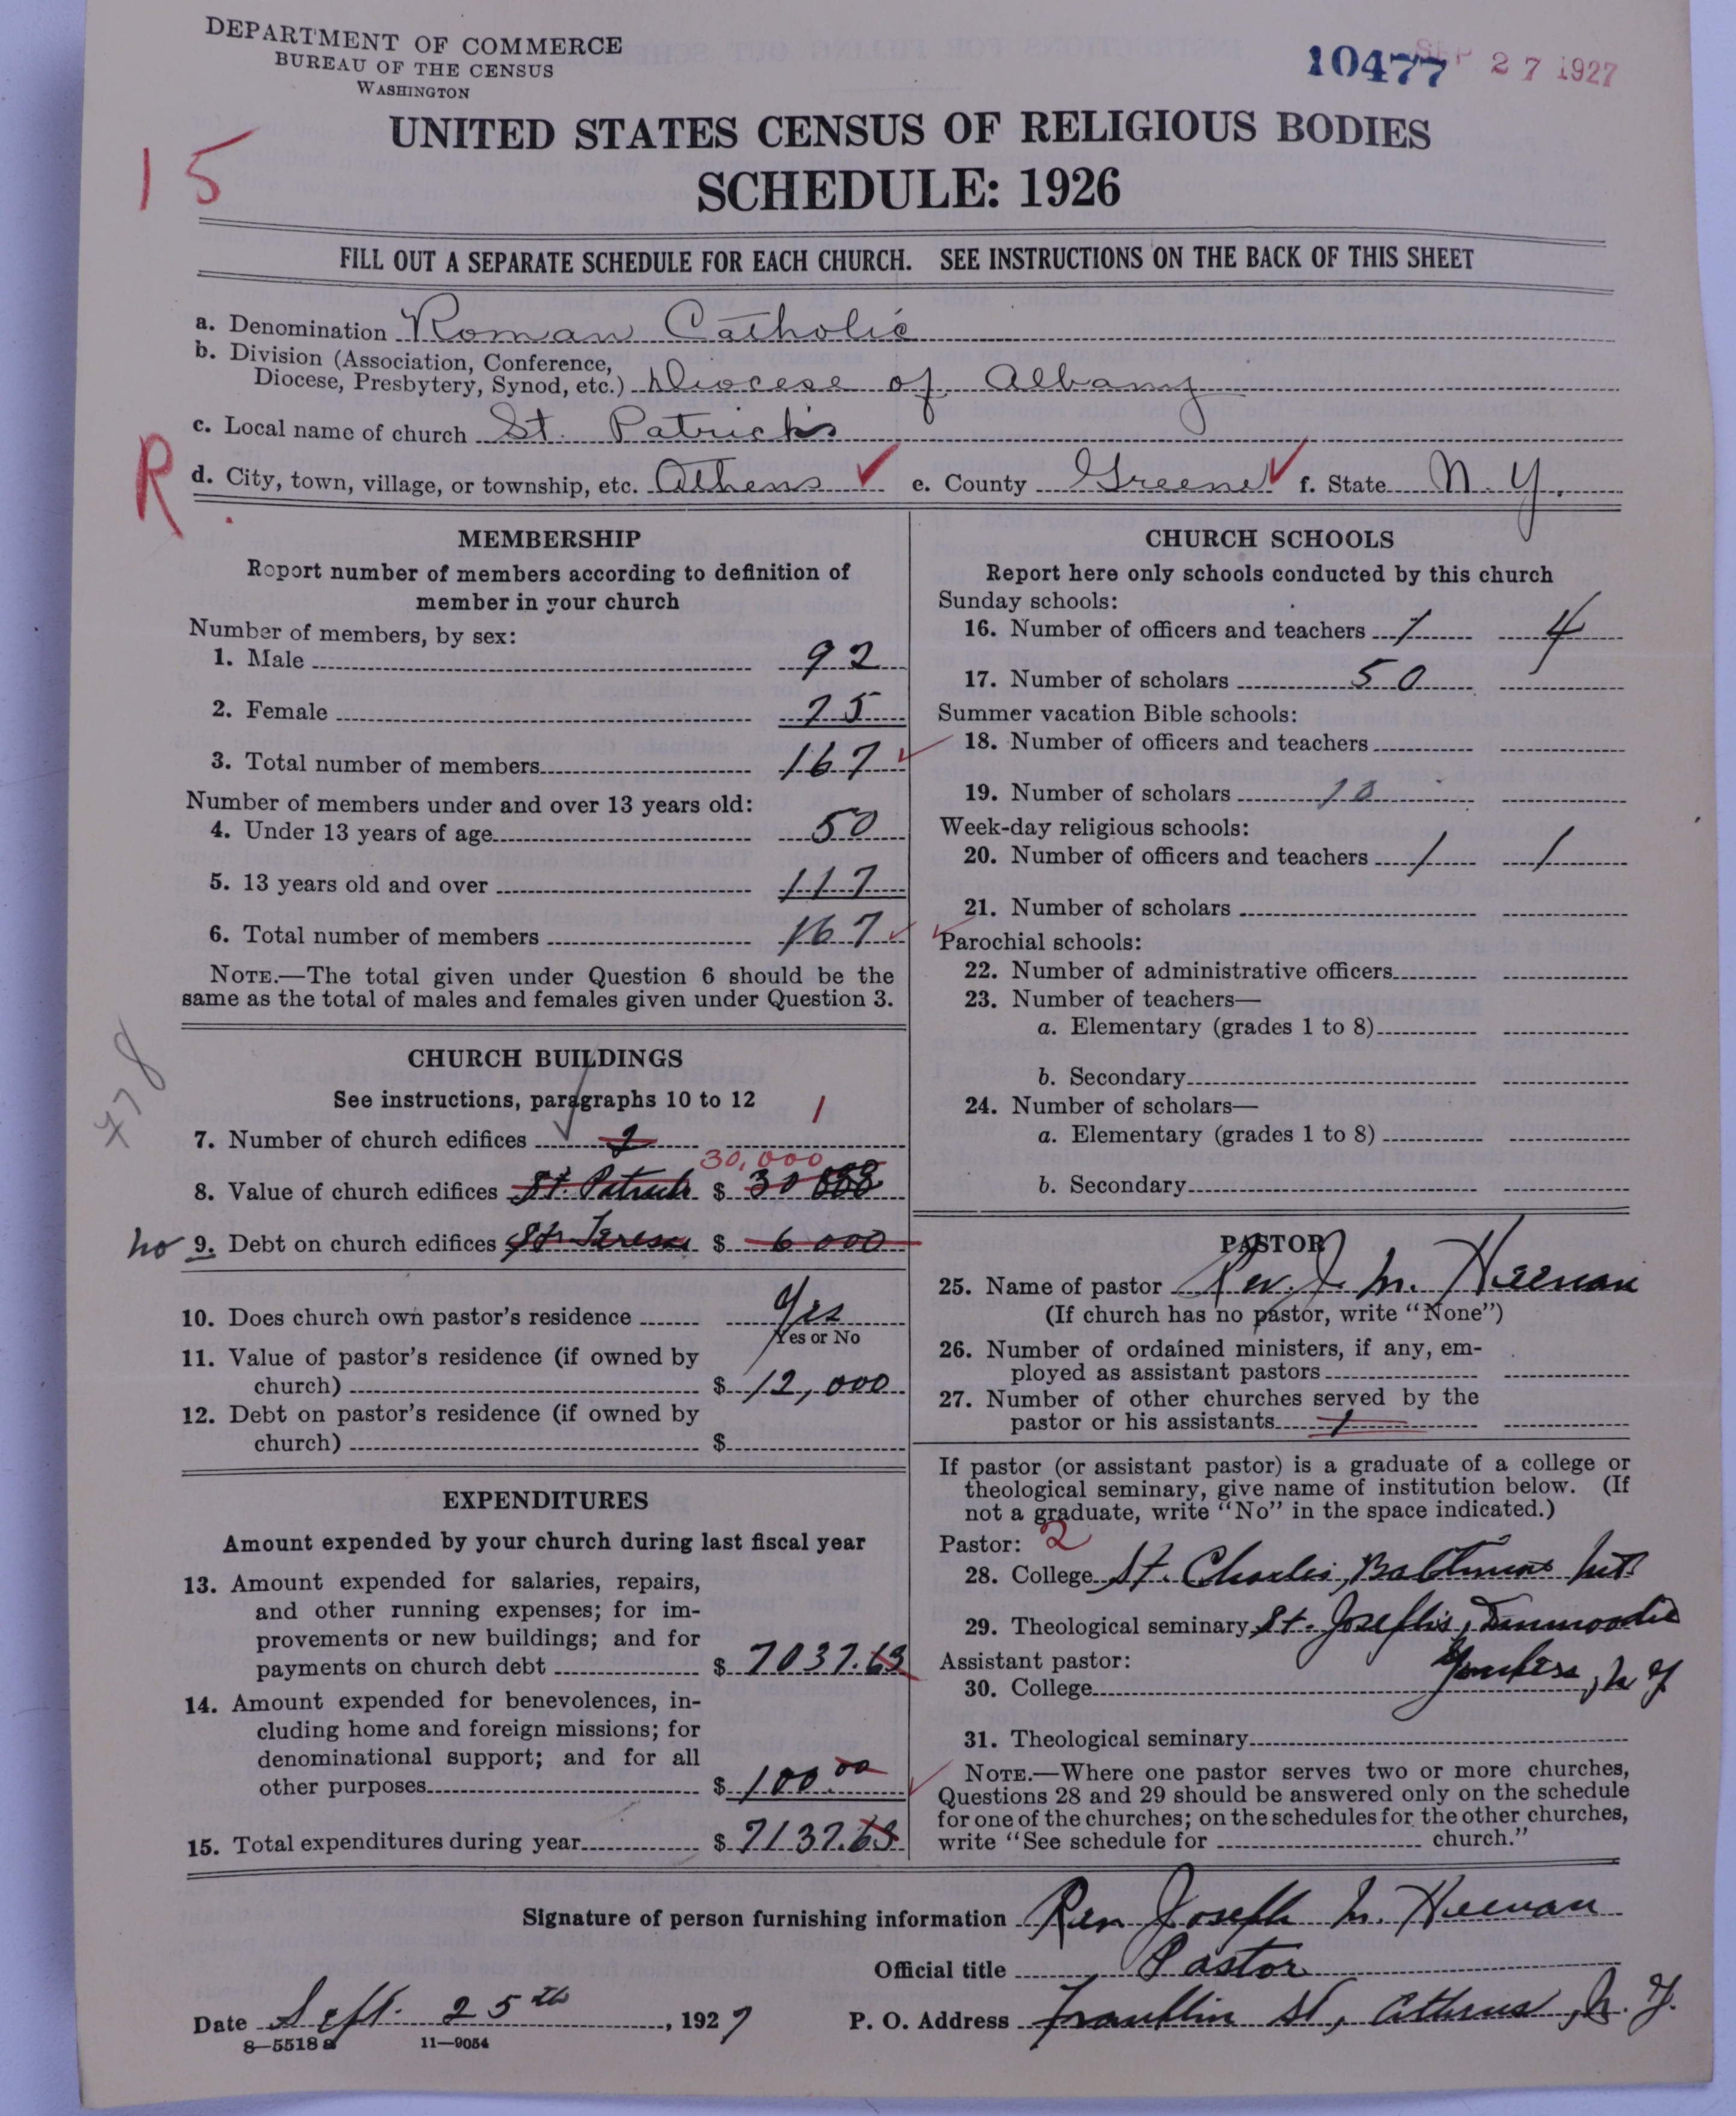 DEPARTMENT OF COMMERCE
BUREAU OF THE CENSUS
WASHINGTON
10477
SEP 27 1927
UNITED STATES CENSUS OF RELIGIOUS BODIES
15
SCHEDULE: 1926
FILL OUT A SEPARATE SCHEDULE FOR EACH CHURCH. SEE INSTRUCTIONS ON THE BACK OF THIS SHEET
a. Denomination Roman Catholic
b. Division (Association, Conference,
Diocese, Presbytery, Synod, etc.) Diocese of Albany
c. Local name of church St. Patrick's
R.
d. City, town, village, or township, etc. Athens ✓ e. County Greene ✓ f. State N.Y.
MEMBERSHIP
Report number of members according to definition of
member in your church
Number of members, by sex:
1. Male 92
2. Female 75
3. Total number of members 167 ✓
Number of members under and over 13 years old:
4. Under 13 years of age 50
5. 13 years old and over 117
6. Total number of members 167 ✓
NOTE.—The total given under Question 6 should be the
same as the total of males and females given under Question 3.
478
CHURCH BUILDINGS
See instructions, paragraphs 10 to 12
7. Number of church edifices ✓ 2 1
30,000
8. Value of church edifices St. Patrick $ 30
no 9. Debt on church edifices $ 6000
10. Does church own pastor's residence Yes
Yes or No
11. Value of pastor's residence (if owned by
church) $ 12,000
12. Debt on pastor's residence (if owned by
church) $
EXPENDITURES
Amount expended by your church during last fiscal year
13. Amount expended for salaries, repairs,
and other running expenses; for im-
provements or new buildings; and for
payments on church debt $ 7037.63
14. Amount expended for benevolences, in-
cluding home and foreign missions; for
denominational support; and for all
other purposes $ 100.00
15. Total expenditures during year $ 7137.63
CHURCH SCHOOLS
Report here only schools conducted by this church
Sunday schools:
16. Number of officers and teachers 1 4
17. Number of scholars 50
Summer vacation Bible schools:
18. Number of officers and teachers
19. Number of scholars 10
Week-day religious schools:
20. Number of officers and teachers 1 1
21. Number of scholars
Parochial schools:
22. Number of administrative officers
23. Number of teachers—
a. Elementary (grades 1 to 8)
b. Secondary
24. Number of scholars—
a. Elementary (grades 1 to 8)
b. Secondary
PASTOR
25. Name of pastor Rev. J. M. Heenan
(If church has no pastor, write "None")
26. Number of ordained ministers, if any, em-
ployed as assistant pastors
27. Number of other churches served by the
pastor or his assistants 1
If pastor (or assistant pastor) is a graduate of a college or
theological seminary, give name of institution below. (If
not a graduate, write "No" in the space indicated.)
Pastor: 2
28. College St. Charles, Baltimore Md.
29. Theological seminary St. Joseph's, Dunwoodie
Assistant pastor: Yonkers, N Y
30. College
31. Theological seminary
NOTE.—Where one pastor serves two or more churches,
Questions 28 and 29 should be answered only on the schedule
for one of the churches; on the schedules for the other churches,
write "See schedule for church."
Signature of person furnishing information Rev Joseph M. Heenan
Official title Pastor
Date Sept. 25th, 1927 P. O. Address Franklin St, Athens, N. Y.
8—5518 a 11—9054